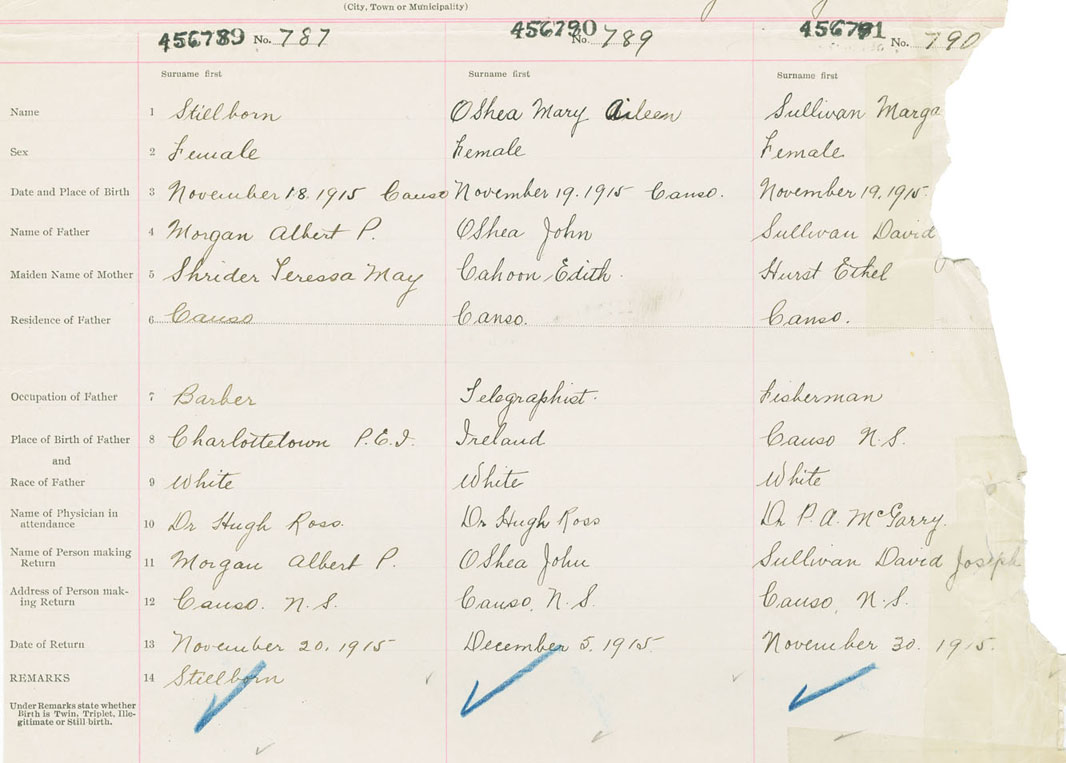 (City, Town or Municipality)
456789 No. 787 456790 No. 789 456791 No. 790
Surname first Surname first Surname first
Name 1 Stillborn OShea Mary Aileen Sullivan Marga
Sex 2 Female Female Female
Date and Place of Birth 3 November 18. 1915 Canso November 19. 1915 Canso. November 19. 1915.
Name of Father 4 Morgan Albert P. OShea John Sullivan David
Maiden Name of Mother 5 Shrider Teressa May Cahoon Edith. Hurst Ethel
Residence of Father 6 Canso Canso. Canso.
Occupation of Father 7 Barber Telegraphist. Fisherman
Place of Birth of Father 8 Charlottetown P.E.I. Ireland Canso N.S.
and
Race of Father 9 White White White
Name of Physician in attendance 10 Dr Hugh Ross. Dr Hugh Ross Dr P. A. McGarry.
Name of Person making Return 11 Morgan Albert P. OShea John Sullivan David Joseph
Address of Person mak-ing Return 12 Canso. N.S. Canso, N.S. Canso, N.S.
Date of Return 13 November 20. 1915 December 5. 1915. November 30. 1915.
REMARKS 14 Stillborn
Under Remarks state whether
Birth is Twin, Triplet, Ille-
gitimate or Still birth.